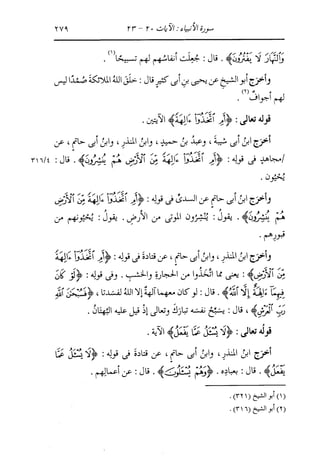 سورة الأنبياء : الآيات ٢٠ - ٢٣ ٢٧٩
وَالنَّهَارَ لَا يَفْتُرُونَ﴾ . قال : جُعِلت أنفاسُهم لهم تسبيحًا(١) .
وأخرَج أبو الشيخِ عن يحيى بنِ أبى كثيرٍ قال : خلَق اللهُ الملائكةَ صُمْدًا ليس
لهم أجوافٌ(٢) .
قوله تعالى : ﴿أَمِ اتَّخَذُوا ءَالِهَةً﴾ الآيتين .
أخرَج ابنُ أبى شيبةَ ، وعبدُ بنُ حميدٍ ، وابنُ المنذرِ ، وابنُ أبى حاتمٍ ، عن
/مجاهدٍ فى قوله : ﴿أَمِ اتَّخَذُوا ءَالِهَةً مِّنَ الْأَرْضِ هُمْ يُنشِرُونَ﴾ . قال : ٣١٦/٤
يُحْيُون .
وأخرَج ابنُ أبى حاتمٍ عن السدىِّ فى قوله : ﴿أَمِ اتَّخَذُوا ءَالِهَةً مِّنَ الْأَرْضِ
هُمْ يُنشِرُونَ﴾ . يقولُ : يُنشِرون الموتى من الأرضِ . يقولُ : يُحْيُونهم من
قبورِهم .
وأخرَج ابنُ المنذرِ ، وابنُ أبى حاتمٍ ، عن قتادةَ فى قوله : ﴿أَمِ اتَّخَذُوا ءَالِهَةً
مِّنَ الْأَرْضِ﴾ : يعنى مما اتَّخَذوا من الحجارةِ والخشبِ . وفى قوله : ﴿لَوْ كَانَ
فِيهِمَا ءَالِهَةٌ إِلَّا اللَّهُ﴾ . قال : لو كان معهما آلهةٌ إلا اللهُ لفسدتا ، ﴿فَسُبْحَانَ اللَّهِ
رَبِّ الْعَرْشِ﴾ ، قال : يسبِّحُ نفسَه تبارَك وتعالى إذْ قيل عليه البُهْتانُ .
قولُه تعالى : ﴿لَا يُسْـَٔلُ عَمَّا يَفْعَلُ﴾ الآية .
أخرَج ابنُ المنذرِ ، وابنُ أبى حاتمٍ ، عن قتادةَ فى قوله : ﴿لَا يُسْـَٔلُ عَمَّا
يَفْعَلُ﴾ . قال : بعبادِه . ﴿وَهُمْ يُسْـَٔلُونَ﴾ . قال : عن أعمالِهم .
(١) أبو الشيخ (٣٢١) .
(٢) أبو الشيخ (٣١٦) .